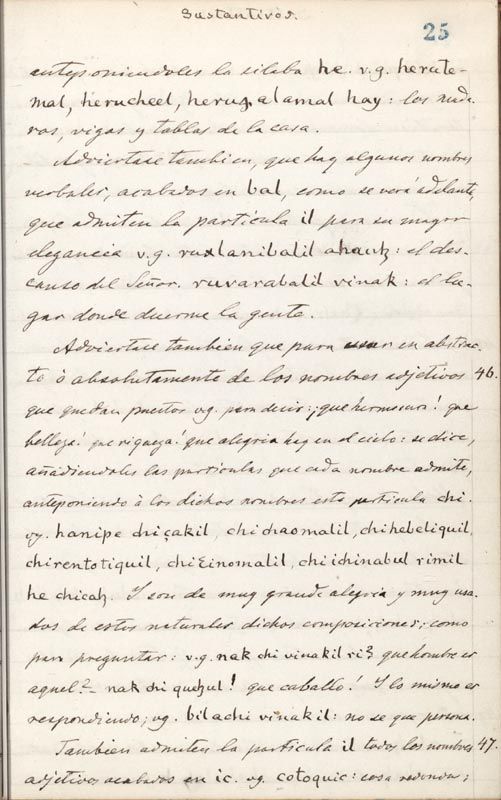 Sustantivos.
25
anteponiendoles la silaba he. v.g. herate-
mal, herucheel, heruꜩalamal hay: los made
ros, vigas y tablas de la casa.
Adviertase tambien, que hay algunos nombres
verbales, acabados en bal, como se verá adelante,
que admiten la particula il para su mayor
elegancia v.g. ruxlanibalil ahauh: el des-
canso del Señor. ruvarabalil vinak: el lu-
gar donde duerme la gente.
Adviertase tambien que para usar en abstrac-
to ò absolutamente de los nombres adjetivos 46.
que quedan puestos vg. para decir: ¡que hermosura! que
belleza! que riqueza! que alegria hay en el cielo: se dice,
añadiendoles las particulas que cada nombre admite,
anteponiendo à los dichos nombres esta particula chi.
vg. hanipe chiçakil, chichaomalil, chihebeliquil,
chirentotiquil, chiɛinomalil, chiichinabul rimil
he chicah. Y son de muy grande alegria y muy usa-
dos de estos naturales dichos composiciones; como
para preguntar: v.g. nak chi vinakil ri? que hombre es
aquel?– nak chi quehul! que caballo! Y lo mismo es
respondiendo; vg. bilachi vinakil: no se que persona.
Tambien admiten la particula il todos los nombres 47.
adjetivos acabados en ic. vg. cotoquic: cosa redonda;